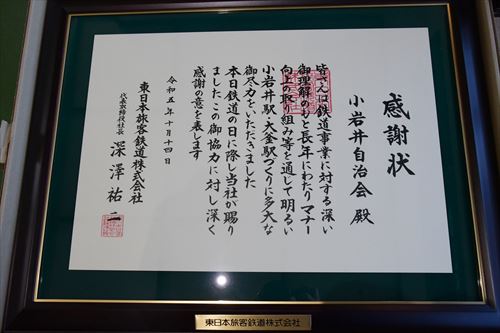 感謝状
小岩井自治会殿
皆さんは鉄道事業に対する深い
御理解のもと長年にわたりマナー
向上の取り組み等を通じて明るい
小岩井駅・大釜駅づくりに多大な
御尽力をいただきました
本日鉄道の日に際し当社が賜り
ましたこの御協力に対し深く
感謝の意を表します
令和五年十月十四日
東日本旅客鉄道株式会社
代表取締役社長 深澤祐二
東日本旅客鉄道株式会社